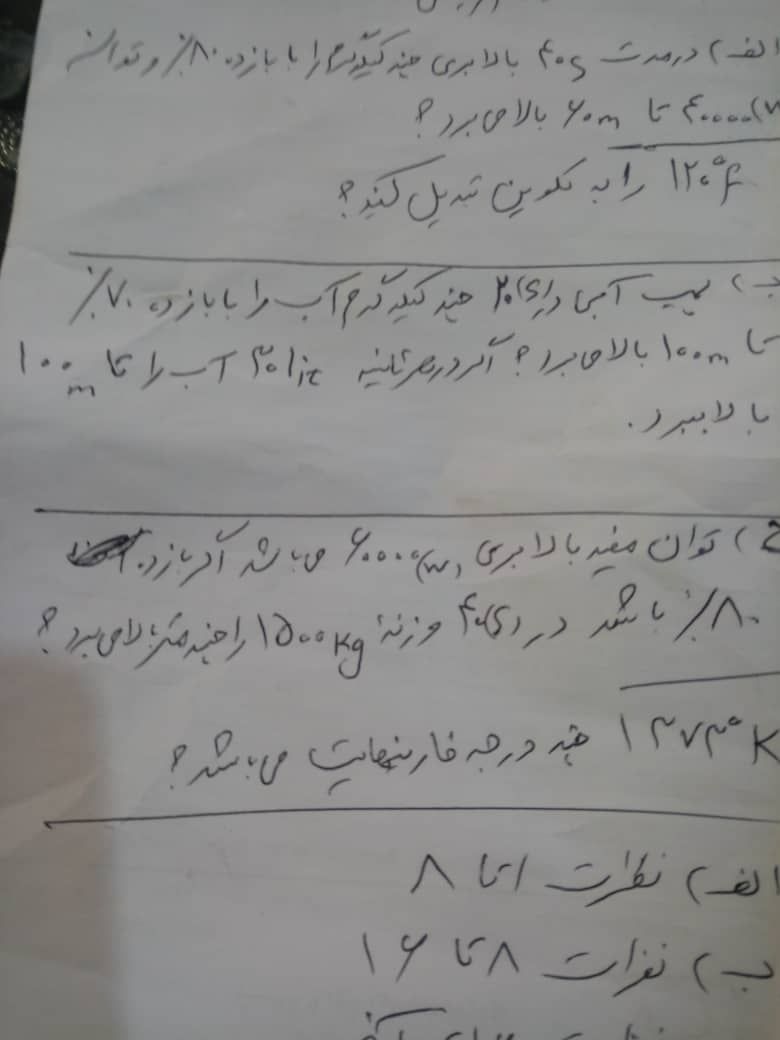 الف) درمدت ۴۰s بالابری چند کیلوگرم را با بازده ۸۰٪ و توان
۴۰۰۰۰(w) تا ۶۰m بالا می برد؟
۱۲۰°F را به کلوین تبدیل کنید؟
ب) پمپ آبی در ۲۰(s) چند کیلوگرم آب را با بازده ۷۰٪
تا ۱۰۰m بالا می برد؟ اگر در هر ثانیه ۳۰lit آب را تا ۱۰۰m
بالا ببرد.
ج) توان مفید بالابری ۶۰۰۰۰(w) می باشد اگر بازده
۸۰٪ باشد در ۴۰(s) وزنهٔ ۱۵۰۰kg را چند متر بالا می برد؟
۱۳۷۳°K چند درجه فارنهایت می باشد؟
الف) نفرات ۱ تا ۸
ب) نفرات ۸ تا ۱۶